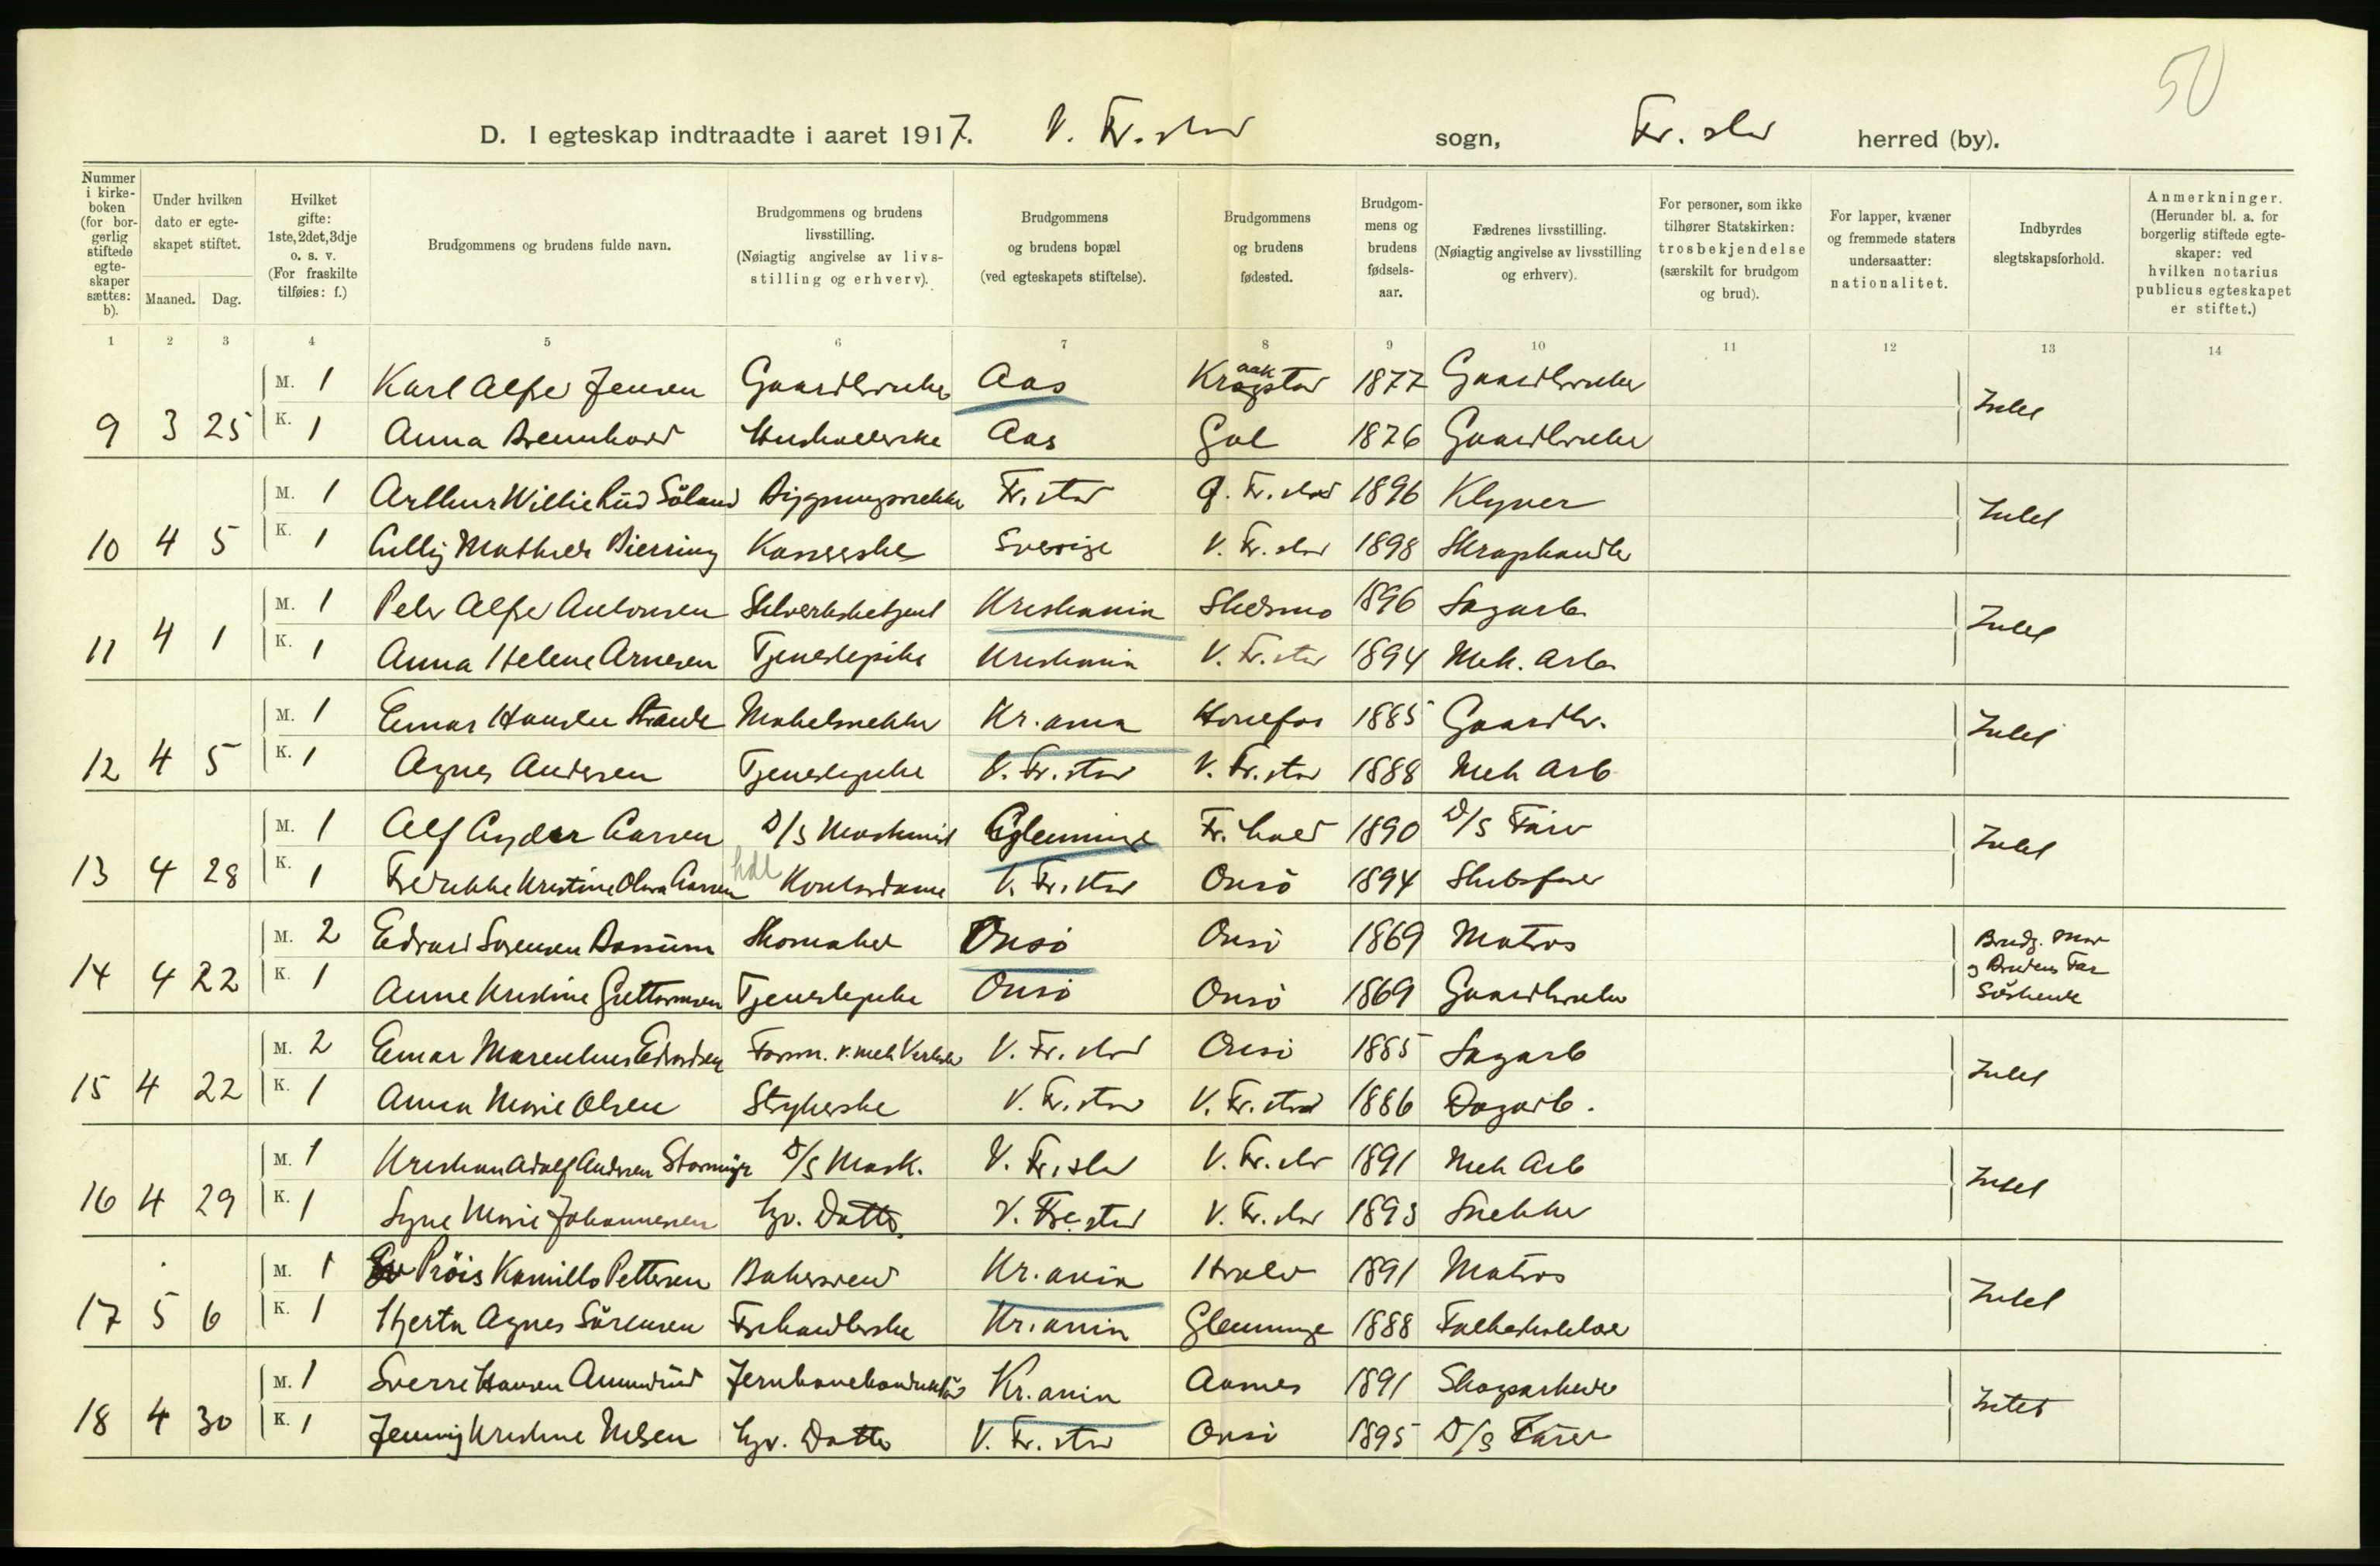 50
D. I egteskap indtraadte i aaret 1917. V. Fr.stad sogn, Fr.stad herred (by).
Nummer i kirkeboken (for borgerlig stiftede egteskaper sættes: b).
Under hvilken dato er egteskapet stiftet.
Maaned. Dag.
Hvilket gifte: 1ste, 2det, 3dje o. s. v. (For fraskilte tilføies: f.)
Brudgommens og brudens fulde navn.
Brudgommens og brudens livsstilling. (Nøiagtig angivelse av livsstilling og erhverv).
Brudgommens og brudens bopæl (ved egteskapets stiftelse).
Brudgommens og brudens fødested.
Brudgommens og brudens fødselsaar.
Fædrenes livsstilling. (Nøiagtig angivelse av livsstilling og erhverv).
For personer, som ikke tilhører Statskirken: trosbekjendelse (særskilt for brudgom og brud).
For lapper, kvæner og fremmede staters undersaatter: nationalitet.
Indbyrdes slegtskapsforhold.
Anmerkninger. (Herunder bl. a. for borgerlig stiftede egteskaper: ved hvilken notarius publicus egteskapet er stiftet.)
1 2 3 4 5 6 7 8 9 10 11 12 13 14
M. 1 Karl Alfr Jensen Gaardbruker Aas Kraakstad 1877 Gaardbruker
9 3 25 K. 1 Anna Husholderske Aas Gol 1876 Gaardbruker Intet
M. 1 Arthur Willie Rud Söland Bygningssnekker Fr.stad Fr.stad 1896 Klyver
10 4 5 K. 1 Mathilde Bierring Sverige V. Fr.stad 1898 Skraphandler Intet
M. 1 Peter Alfr Antonsen Kristiania Skedsmo 1896 Sagarb
11 4 1 K. 1 Anna Helene Arnesen Tjenestepike Kristiania V. Fr.stad 1894 Mek. Arb Intet
M. 1 Einar Hansen Strande Møbelsnekker Kr.ania Hønefos 1885 Gaardbr.
12 4 5 K. 1 Agnes Andersen Tjenestepike V. Fr.stad V. Fr.stad 1888 Mek Arb Intet
M. 1 Alf Larsen D/S Maskinist Glemminge Fr.hald 1890 D/S Förer
13 4 28 K. 1 Fredrikke Kristine Olava Larsen hdl Kontordame V. Fr.stad Onsö 1894 Skibsförer Intet
M. 2 Edvard Sörensen Skomaker Onsö Onsö 1869 Matros
14 4 22 K. 1 Anne Kristine Guttormsen Tjenestepike Onsö Onsö 1869 Gaardbruker Brudg. Mor og Brudens Far Söskende
M. 2 Einar Marentius Edvardsen Form. v. mek Verksted V. Fr.stad Onsö 1885 Sagarb
15 4 22 K. 1 Anna Marie Olsen Strykerske V. Fr.stad V. Fr.stad 1886 Dagarb. Intet
M. 1 Kristian Adolf Andersen Stormyr D/S Mask. V. Fr.stad V. Fr.stad 1891 Mek Arb
16 4 29 K. 1 Signe Marie Johannesen hjv. Datter V. Fr.stad V. Fr.stad 1893 Snekker Intet
M. 1 Pröis Kamillo Pettersen Bakersvend Kr.ania Hvaler 1891 Matros
17 5 6 K. 1 Hjerta Agnes Sörensen Kr.ania Glemminge 1888 Intet
M. 1 Sverre Hansen Amundrud Jernbanekonduktör Kr.ania Aasnes 1891 Skogarbeider
18 4 30 K. 1 Jenny Kristine Nilsen hjv. Datter V. Fr.stad Onsö 1895 D/S Förer Intet